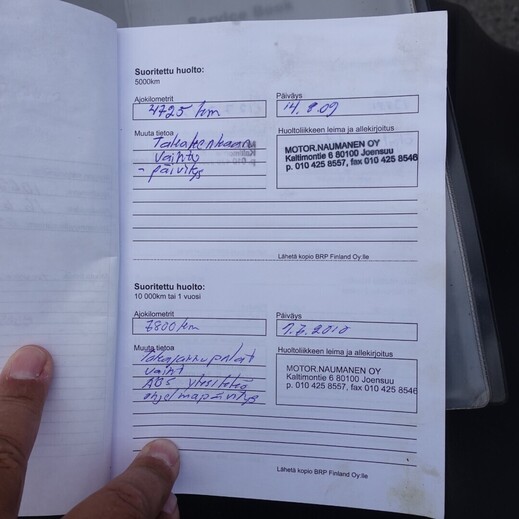 Service Book
Suoritettu huolto:
5000km
Ajokilometrit
Päiväys
4725 km
14.8.09
Muuta tietoa
Huoltoliikkeen leima ja allekirjoitus
Takarenkaan
vaihto
- päivitys
MOTOR.NAUMANEN OY
Kaltimontie 6 80100 Joensuu
p. 010 425 8557, fax 010 425 8546
Lähetä kopio BRP Finland Oy:lle
Suoritettu huolto:
10 000km tai 1 vuosi
Ajokilometrit
Päiväys
7800 km
1.7.2010
Muuta tietoa
Huoltoliikkeen leima ja allekirjoitus
Takajarrupalat
vaiht
ABS
ohjelmapäivitys
MOTOR.NAUMANEN OY
Kaltimontie 6 80100 Joensuu
p. 010 425 8557, fax 010 425 8546
Lähetä kopio BRP Finland Oy:lle